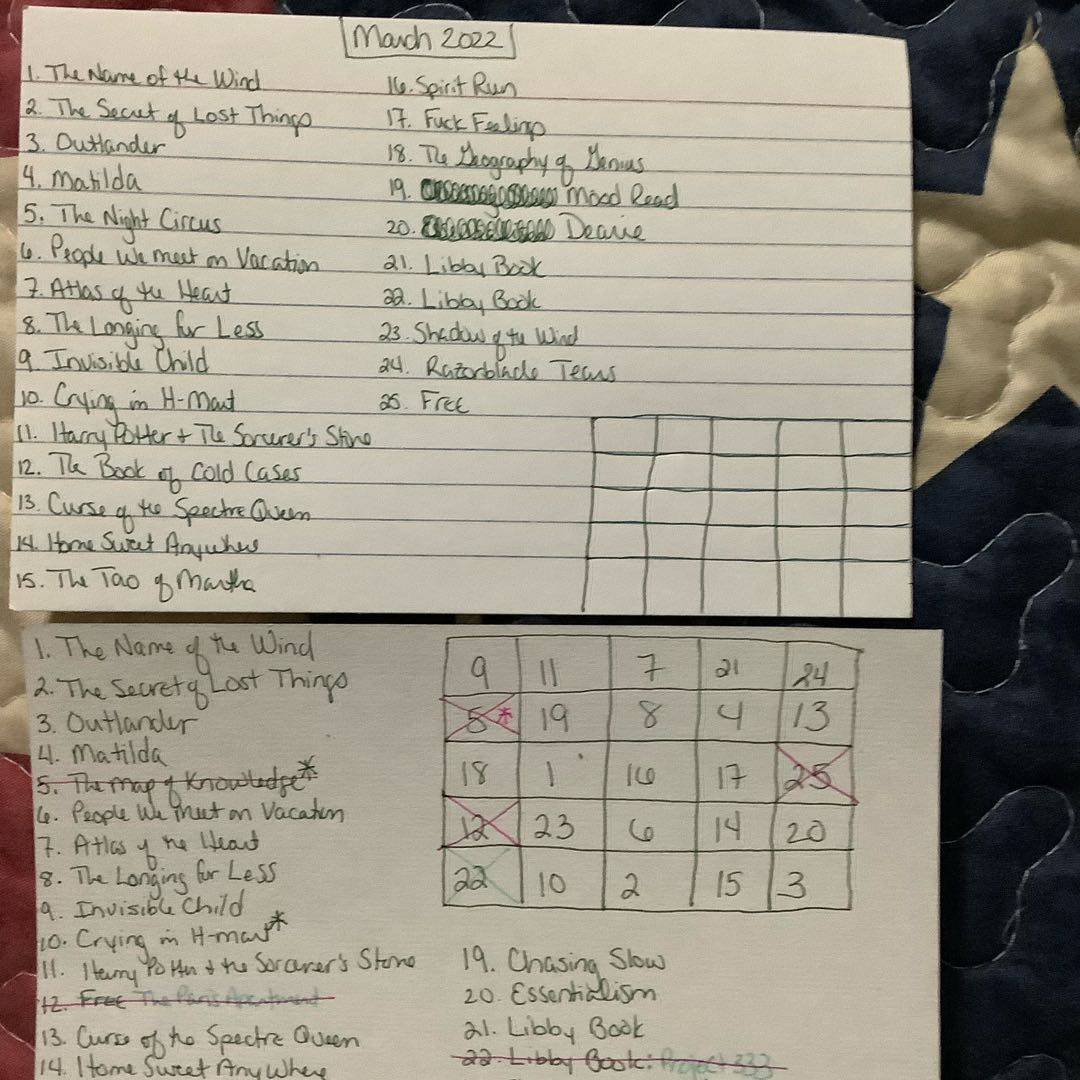 March 2022
1. The Name of the Wind
2. The Secret of Lost Things
3. Outlander
4. Matilda
5. The Night Circus
6. People We Meet on Vacation
7. Atlas of the Heart
8. The Longing for Less
9. Invisible Child
10. Crying in H-Mart
11. Harry Potter + The Sorcerer's Stone
12. The Book of Cold Cases
13. Curse of the Spectre Queen
14. Home Sweet Anywhere
15. The Tao of Martha
16. Spirit Run
17. Fuck Feelings
18. The Geography of Genius
19. Mood Read
20. Dearie
21. Libby Book
22. Libby Book
23. Shadow of the Wind
24. Razorblade Tears
25. Free
1. The Name of the Wind
2. The Secret of Lost Things
3. Outlander
4. Matilda
5. The Map of Knowledge*
6. People We Meet on Vacation
7. Atlas of the Heart
8. The Longing for Less
9. Invisible Child
10. Crying in H-mart*
11. Harry Potter + the Sorcerer's Stone
12. Free The Paris Apartment
13. Curse of the Spectre Queen
14. Home Sweet Anywhere
9 11 7 21 24
5* 19 8 4 13
18 1 16 17 25
12 23 6 14 20
22 10 2 15 3
19. Chasing Slow
20. Essentialism
21. Libby Book
22. Libby Book: Project 333